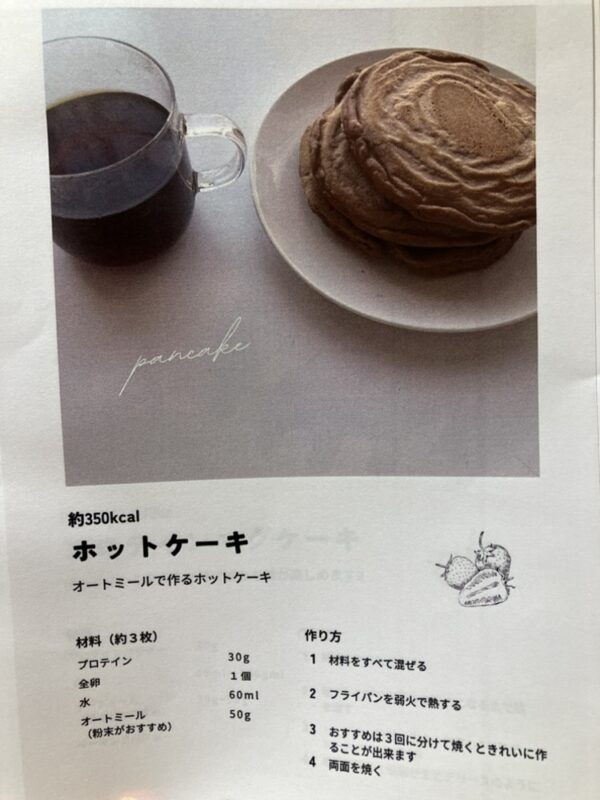 pancake
約350kcal
ホットケーキ
オートミールで作るホットケーキ
材料（約３枚）
プロテイン 30g
全卵 １個
水 60ml
オートミール 50g
（粉末がおすすめ）
作り方
1 材料をすべて混ぜる
2 フライパンを弱火で熱する
3 おすすめは３回に分けて焼くときれいに作
ることが出来ます
4 両面を焼く